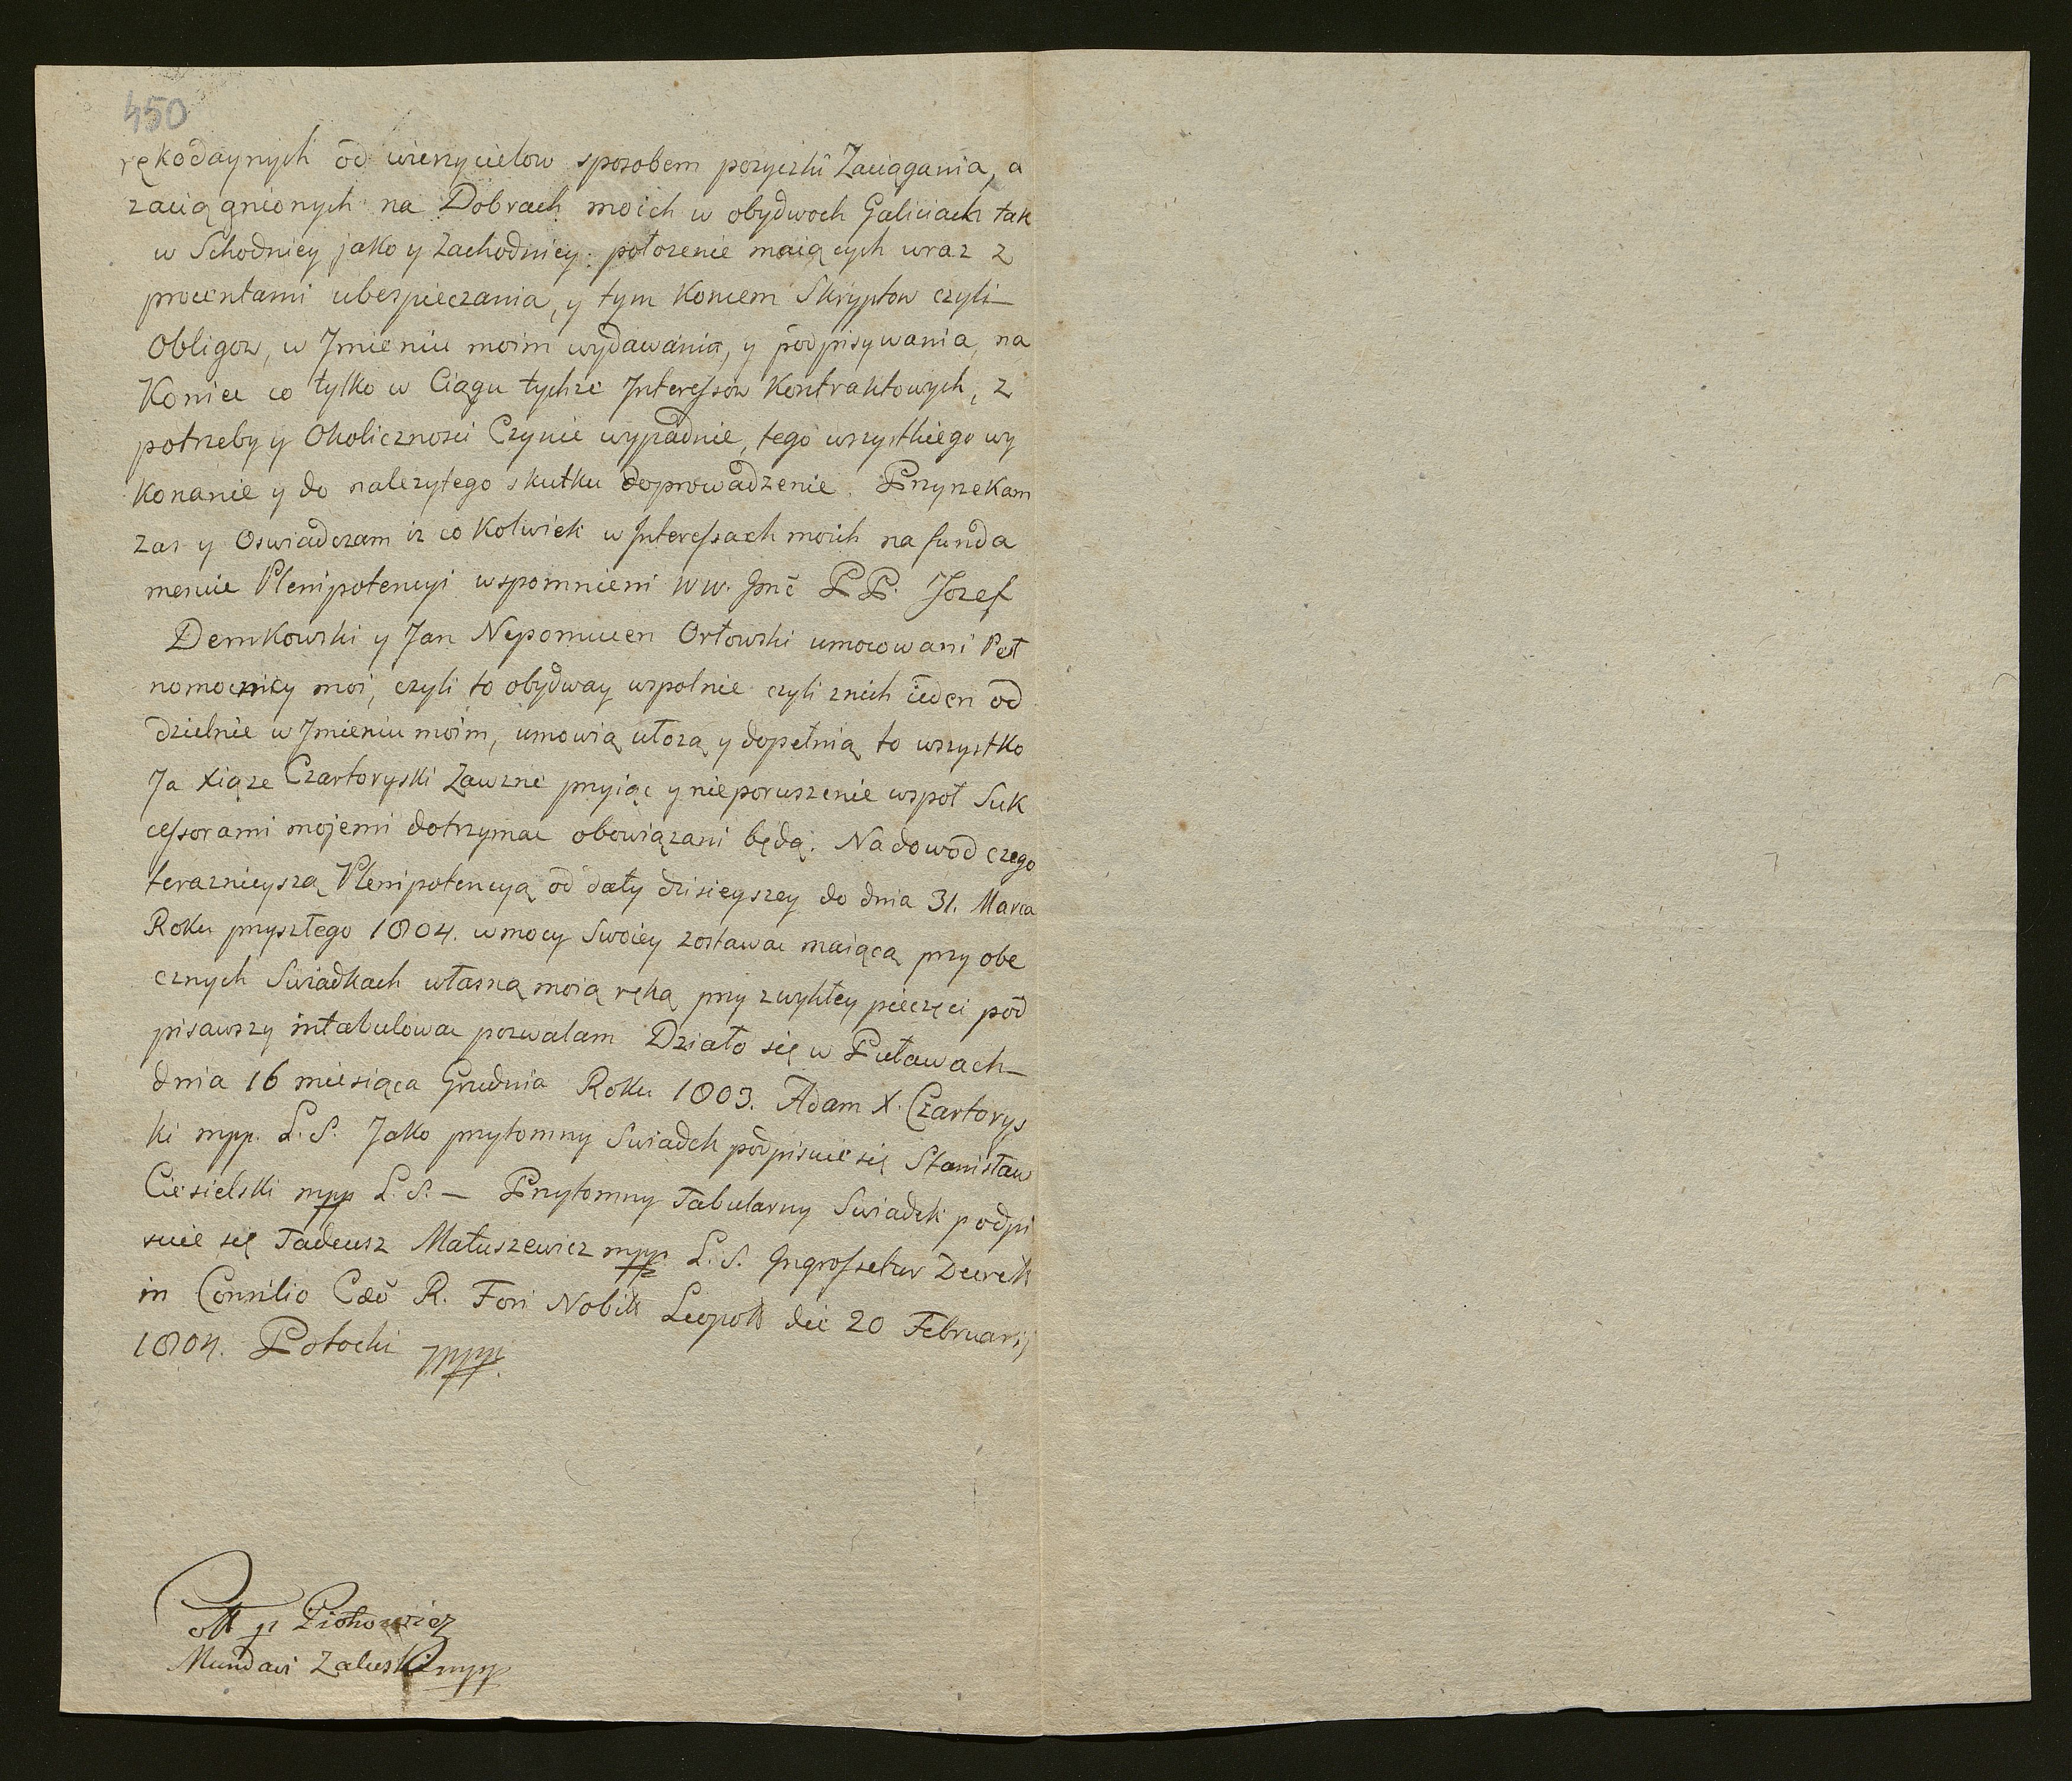 450
rękodaynych od wierzycielow sposobem pozyczki Zaciągania, a
zaciągnionych na Dobrach moich w obydwoch Galiciach tak
w Schodniey jako y Zachodniey położenie maiących wraz z
procentami ubezpieczania, y tym Koncem Skryptow czyli
Obligow, w Jmieniu moim wydawania, y podpisywania, na
Koniec co tylko w Ciągu tychze Interessow Kontraktowych, z
potrzeby y Okolicznosci Czynic wypadnie, tego wszystkiego wy
konanie y do nalezytego skutku doprowadzenie. Przyrzekam
zas y Oswiadczam iz co kolwiek w Interessach moich na funda
mencie Plenipotencyi wspomnieni WW. Jmć PP. Jozef
Demkowski y Jan Nepomucen Orłowski umocowani Peł
nomocnicy moi, czyli to obydway wspolnie czyli znich ieden od
dzielnie w Jmieniu moim, umowią ułozą y dopełnią to wszystko
Ja Xiąze Czartoryski Zawzne przyiąc y nieporuszenie wspoł Suk
cessorami mojemi dotrzymac obowiązani będą. Na dowod czego
terazniejszą Plenipotencyą od daty dzisieyszey do dnia 31. Marca
Roku przyszłego 1804. w mocy Swoiey zostawac maiącą przy obe
cznych Swiadkach własną moią ręką przy zwykłey pieczęci pod
pisawszy intabulowac pozwalam Działo się w Puławach
dnia 16 miesiąca Grudnia Roku 1803. Adam X. Czartorys
ki mpp. L.S. Jako przytomny Swiadek podpisuie się Stanisław
Ciesielski mpp L.S. — Przytomny Tabularny Swiadek podpi
suie się Tadeusz Matuszewicz mpp. L.S. Ingrossetur Decret
in Consilio Cæo R. Fori Nobilt Leopolt die 20 Februarij
1804. Potocki mpp.
Coll p Piotrowicz
Mundavi Zaluski mpp